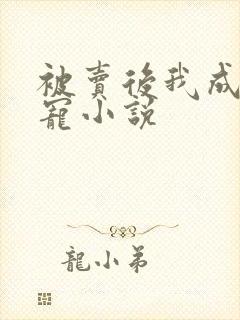 被賣後我成
寵小説
龍小弟